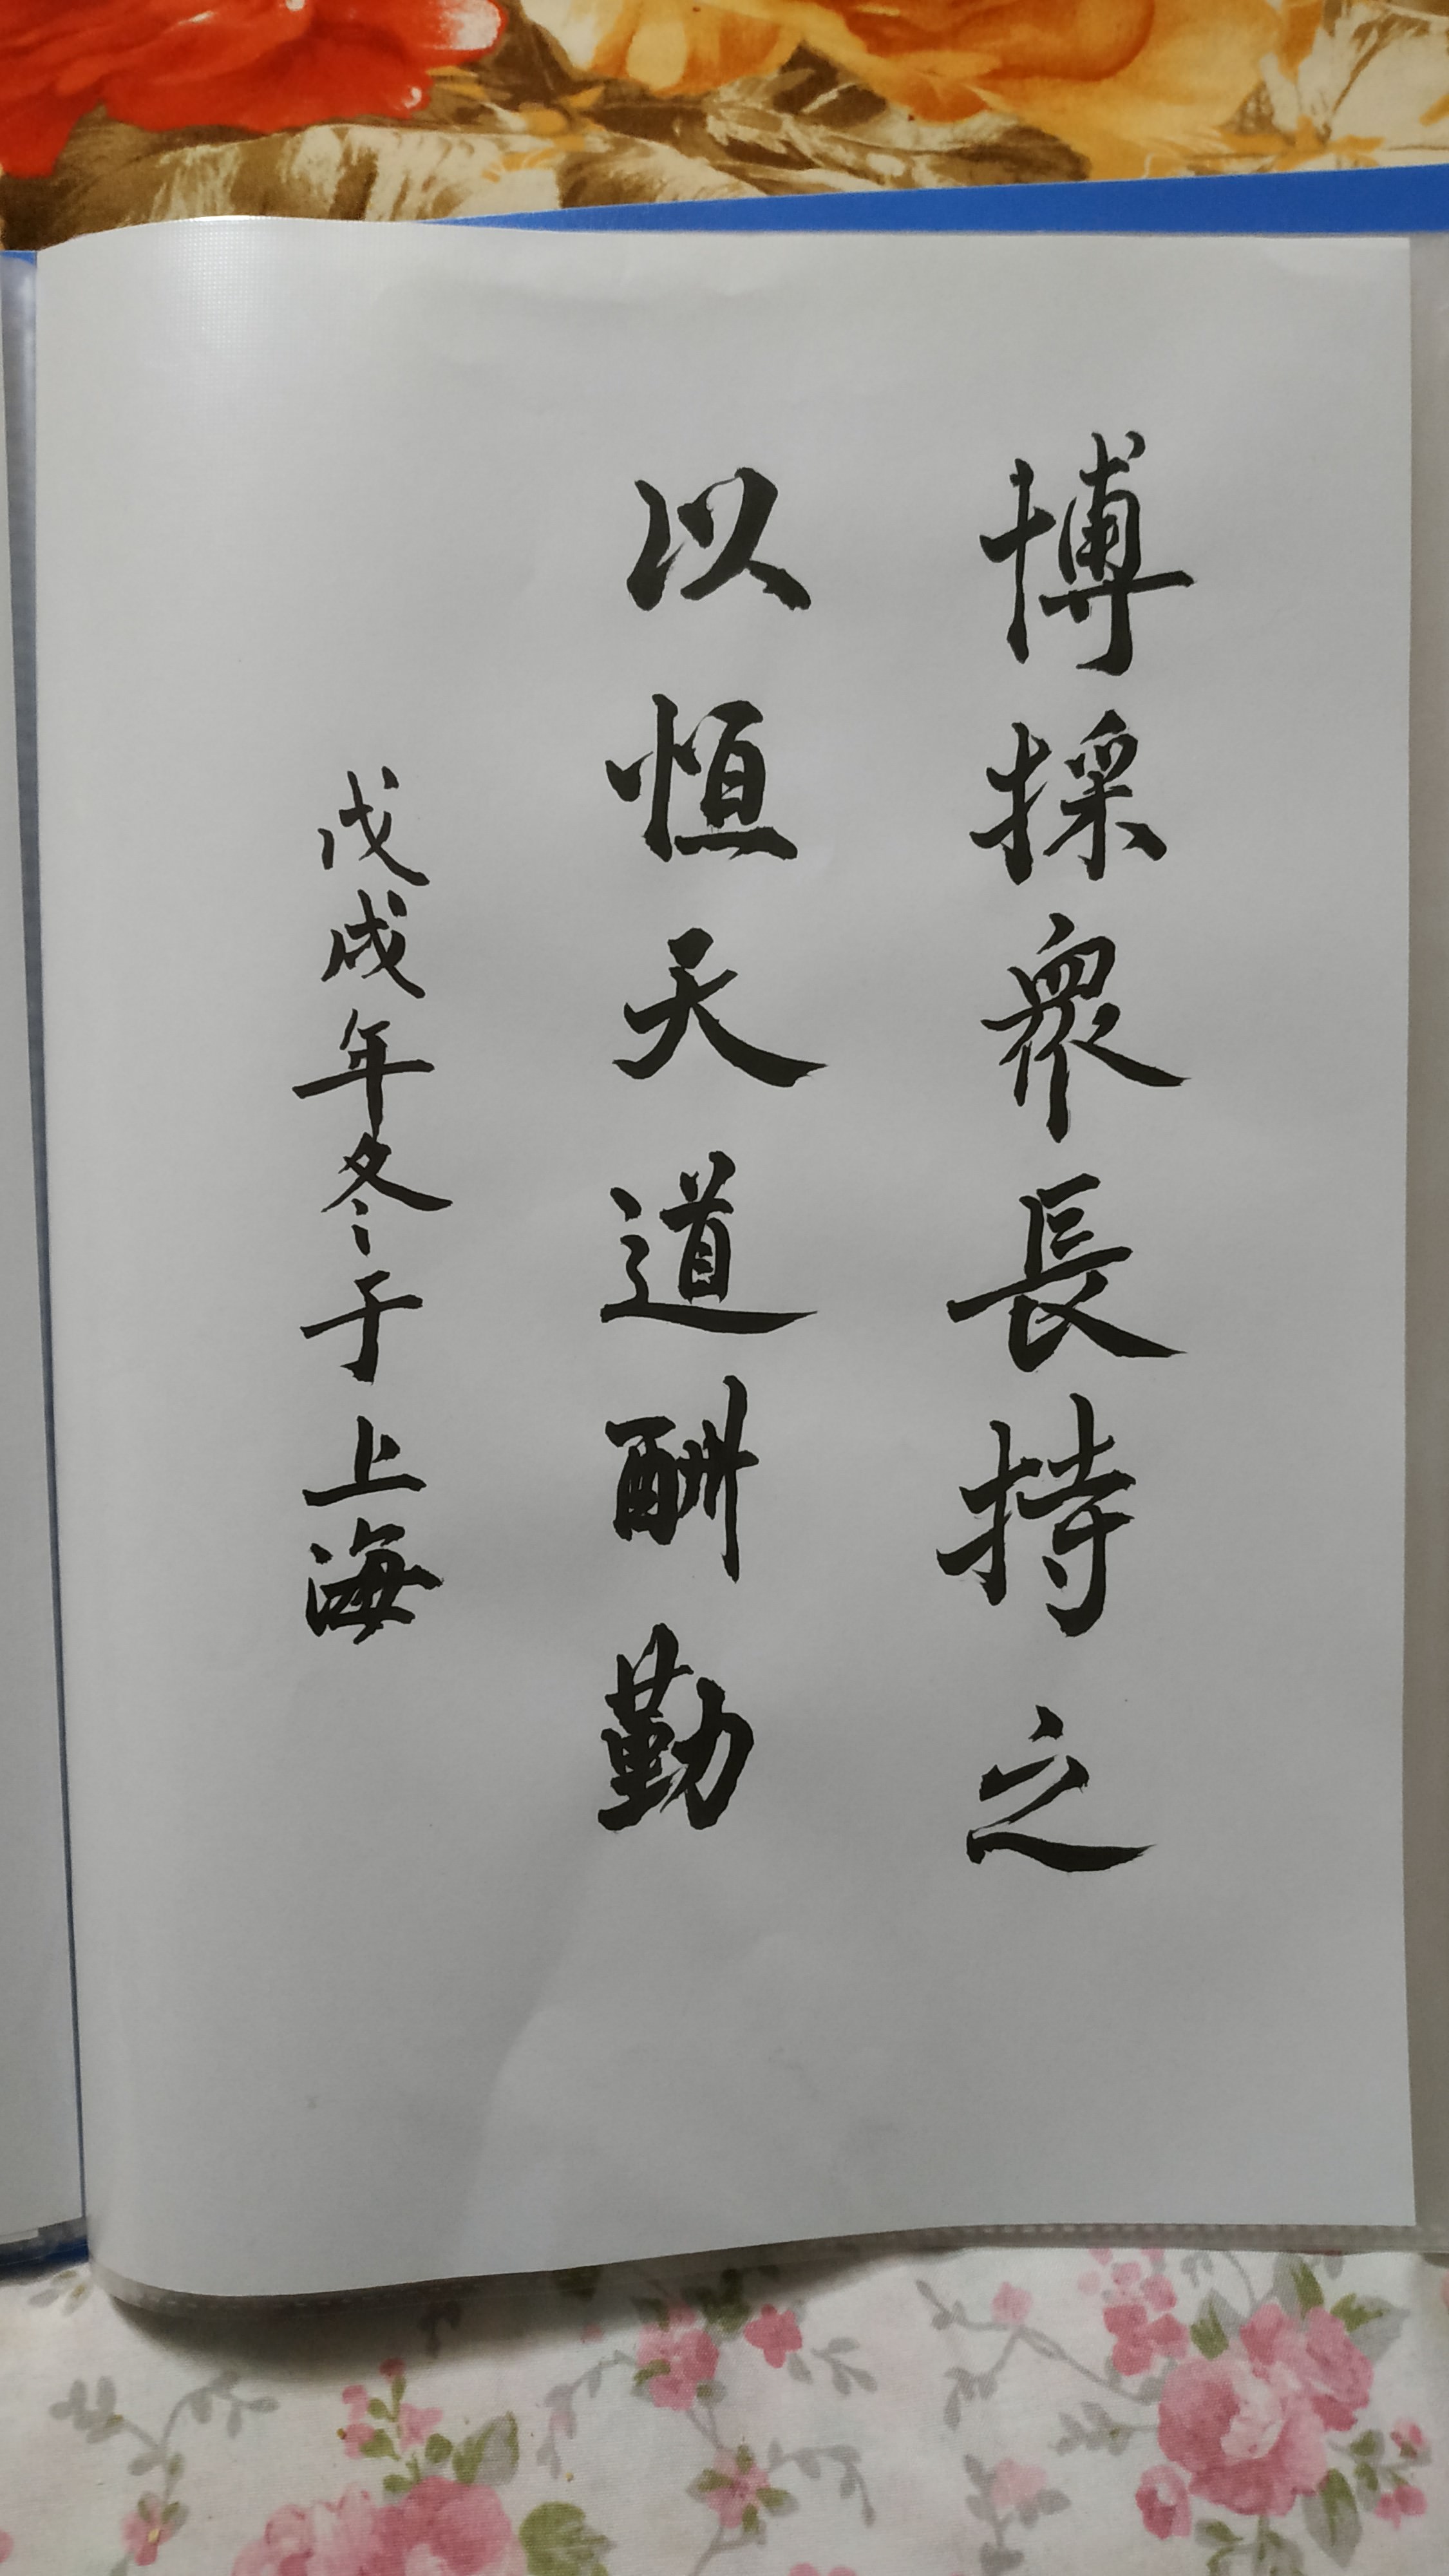 博採眾長持之
以恒天道酬勤
戊戌年冬于上海